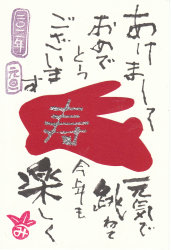 あけまして
おめで
とう
ございます
二〇二三年
元旦
寿
元気で
跳ねて
今年も
楽しく
み